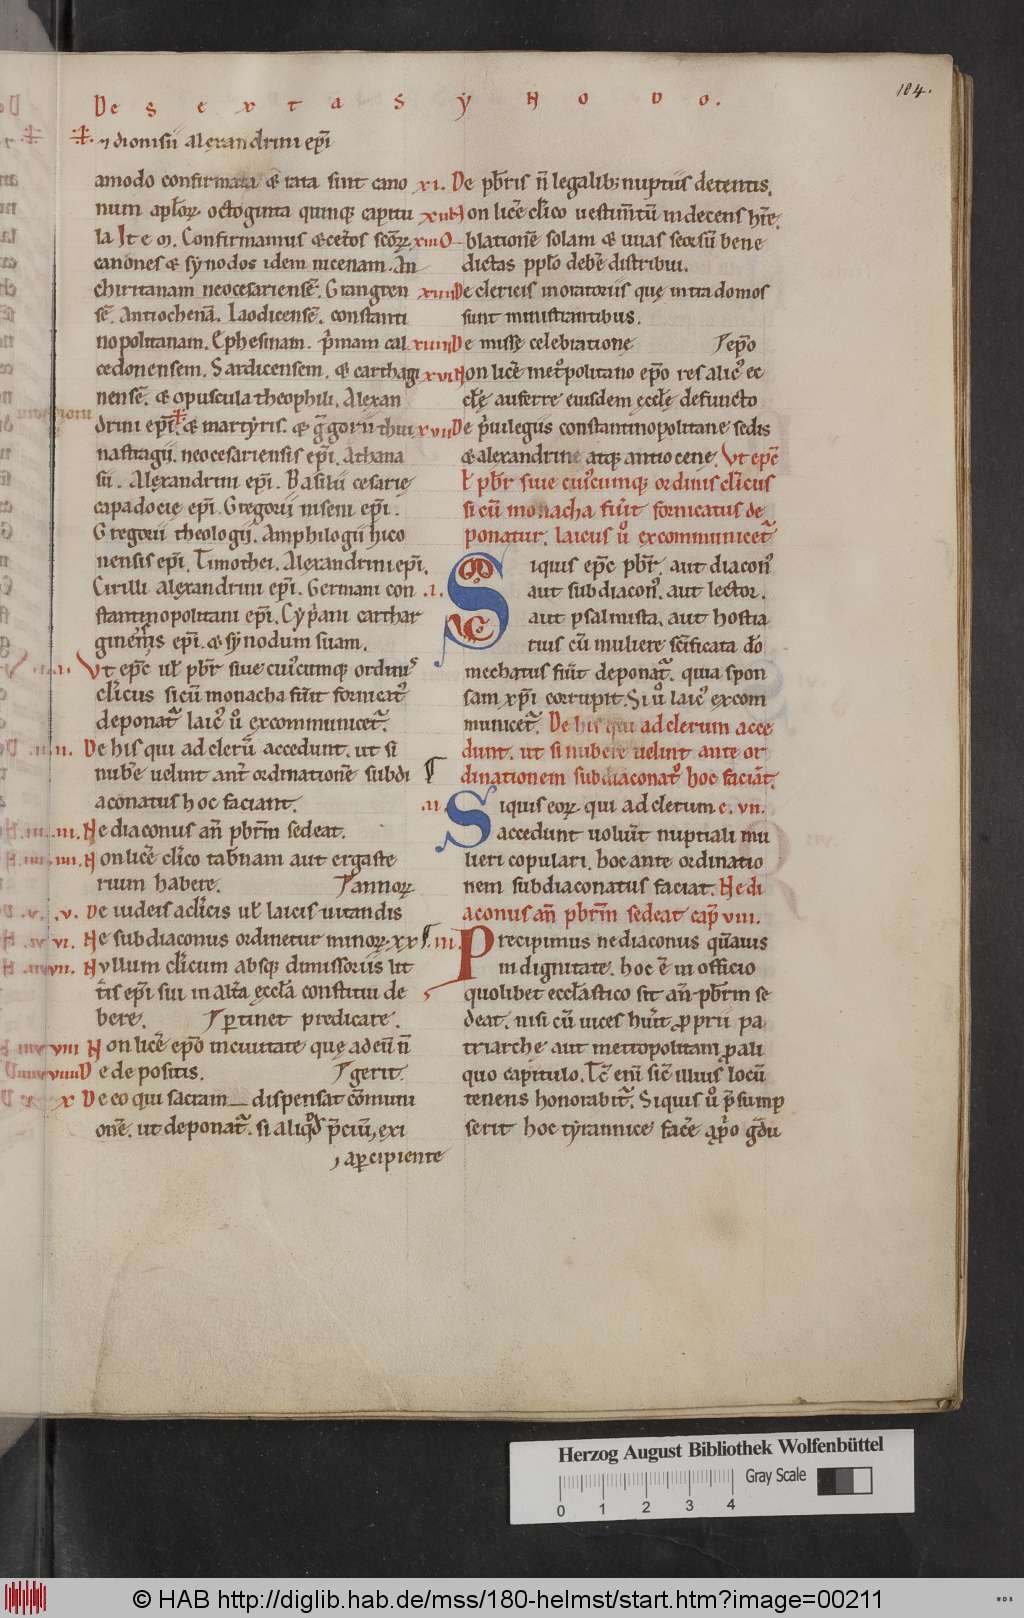 De sexta Synodo.
184.
⁊ dionisii alexandrini ep̅i
amodo confirmata & rata sint cano
num apl̅oꝝ octoginta quinqꝫ capitu
la Item. Confirmamus & cet̅os sc̅oꝝ
canones & synodos idem nicenam. An
chiritanam neocesariense̅. Grangren
se̅. Antiochena̅. Laodicense̅. constanti
nopolitanam. Ephesinam. p̅mam cal
cedonensem. Sardicensem. & carthagi
nense̅. & opuscula theophili. Alexan
drini ep̅i. & martyris. & g̅gorii thui
nastragii. neocesariensis ep̅i. Athana
sii. Alexandrini ep̅i. Basilii cesarię
capadocię ep̅i. Gregorii niseni ep̅i.
Gregorii theologii. Amphilogii hico
nensis ep̅i. Timothei. Alexandrini ep̅i.
Cirilli alexandrini ep̅i. Germani con
stantinopolitani ep̅i. Cyp̅ani carthar
ginensis ep̅i. & synodum suam.
.i. Vt ep̅c ul̅ pb̅r siue cui᾽cumqꝫ ordinis
cl̅icus si cu̅ monacha fu̅it fornicat᾽
deponat̅ laic᾽ u̅ excommunicet̅.
.ii. De his qui ad cleru̅ accedunt. ut si
nub̅e uelint ant̅ ordinatione̅ subdi
aconatus hoc faciant.
.iii. Ne diaconus an̅ pb̅rm sedeat.
.iiii. Non lice̅ cl̅ico tab̅nam aut ergaste
rium habere. annoꝝ
.v. De iudeis a cl̅icis ul̅ laicis uitandis
.vi. Ne subdiaconus ordinetur minoꝝ. xx
.vii. Nullum cl̅icum absqꝫ dimissoriis lit
t̅is ep̅i sui in alt̅a eccl̅a constitui de
bere. ptinet predicare.
viii Non lice̅ ep̅o in ciuitate quę ad eu̅ n̅
viiii De depositis. gerit
x De eo qui sacram dispensat co̅muni
one̅. ut deponat̅. si aliq̅d p̅ciu̅ exi
apcipiente
xi. De pb̅ris n̅ legalibꝫ nuptiis detentis.
xii Non lice̅ cl̅ico uestim̅tu̅ indecens h̅re.
xiii Oblatione̅ solam & uuas seorsu̅ bene
dictas pp̅lo debe̅ distribui.
xiiii De clericis in oratoriis quę intra domos
sunt ministrantibus.
xv De missę celebratione ep̅o
xvi Non lice̅ met᾽politano ep̅o res alic᾽ ec
cl̅ę auferre eiusdem eccl̅ę defuncto
xvii De p̅uilegiis constantinopolitane sedis
& alexandrine atqꝫ antiocene. Vt ep̅c
ul̅ pb̅r siue cui᾽cumqꝫ ordinis cl̅icus
si cu̅ monacha fu̅it fornicatus de
ponatur. laicus u̅ excommunicet̅
.i. Siquis ep̅c pb̅r, aut diacon᾽
aut subdiacon᾽. aut lector.
aut psalmista. aut hostia
rius cu̅ muliere sc̅ificata d̅o
mechatus fu̅it deponat̅. quia spon
sam xp̅i corrupit. Si u̅ laic᾽ excom
municet̅. De his qui ad clerum acce
dunt. ut si nubere uelint ante or
dinationem subdiaconat᾽ hoc facia̅t.
.ii. Siquis eoꝝ qui ad clerum c. vii.
accedunt uolu̅it nuptiali mu
lieri copulari. hoc ante ordinatio
nem subdiaconatus faciat. Ne di
aconus an̅ pb̅rm sedeat cap̅ viii.
.iii. Precipimus ne diaconus qua̅uis
in dignitate. hoc e̅ in officio
quolibet eccl̅astico sit an̅ pb̅rm se
deat. nisi cu̅ uices hu̅it proprii pa
triarche aut metropolitani pro ali
quo capitulo. Tc̅ eni̅ sic̅ illius locu̅
tenens honorabit̅. Siquis u̅ p̅sump
serit hoc tyrannice face̅ a prop̅o g̅du
Herzog August Bibliothek Wolfenbüttel
Gray Scale
0 1 2 3 4
© HAB http://diglib.hab.de/mss/180-helmst/start.htm?image=00211